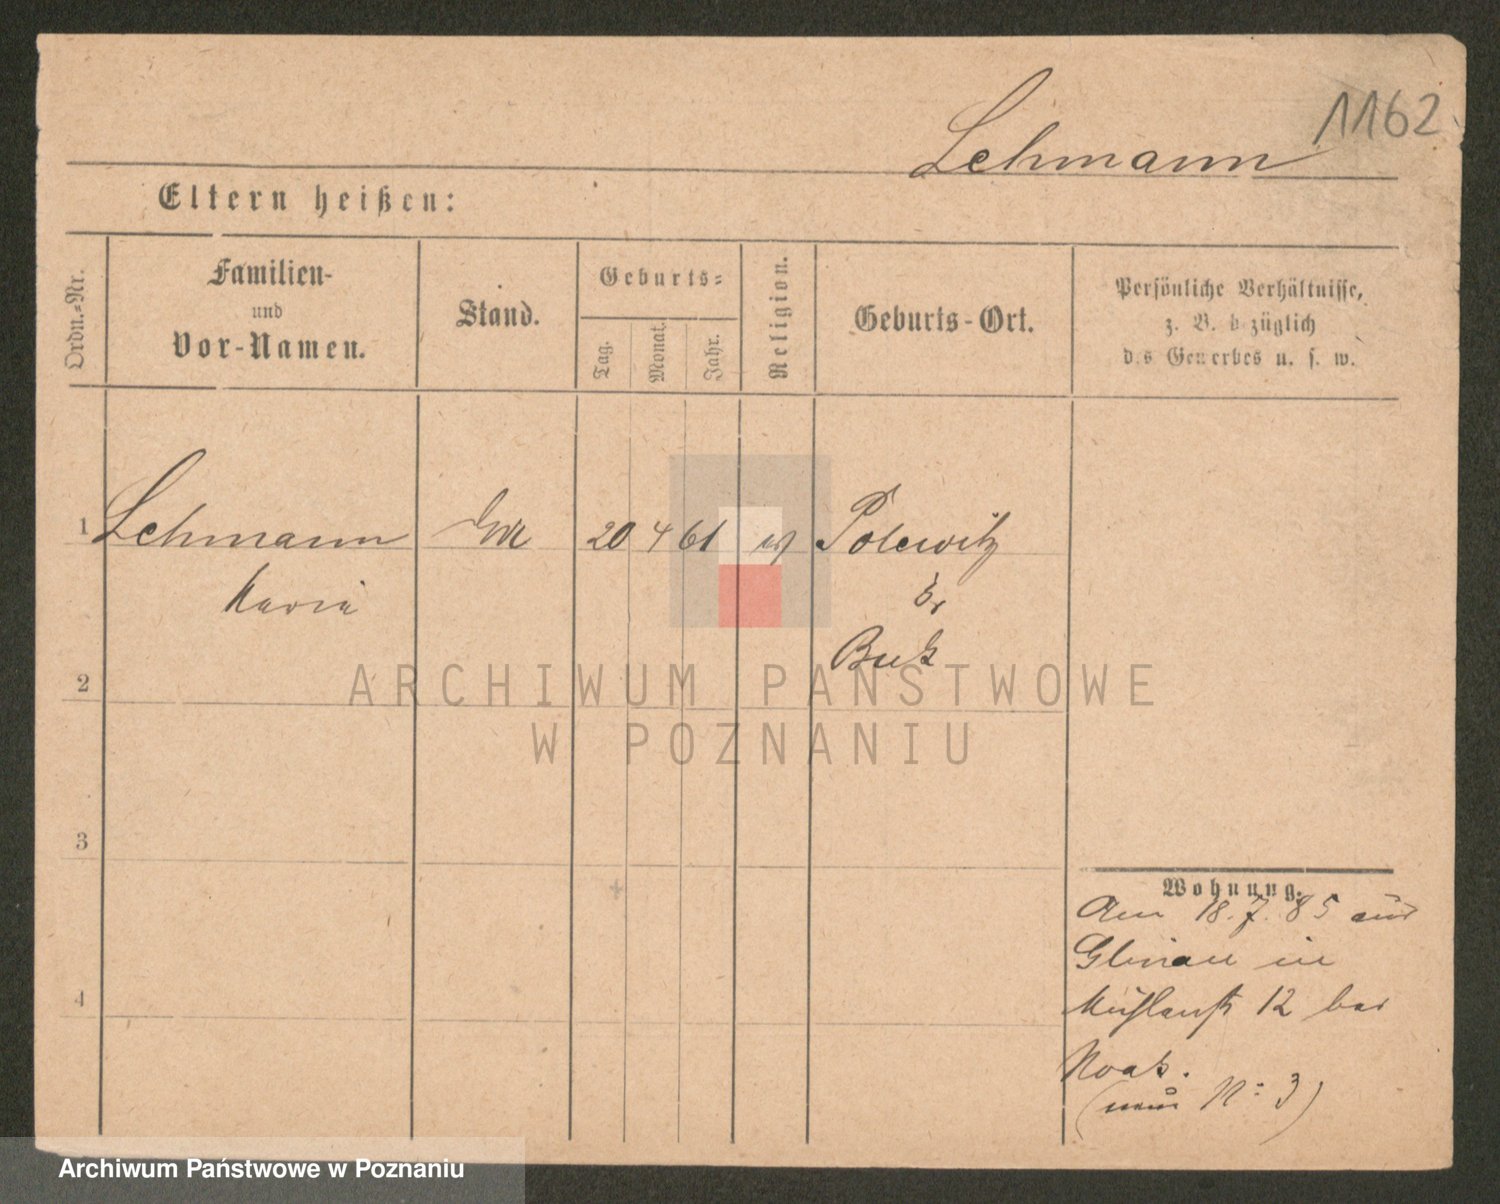 1162
Lehmann
Eltern heißen:
Ordn.-Nr.
Familien-
und
Vor-Namen.
Stand.
Geburts-
Tag.
Monat.
Jahr.
Religion.
Geburts-Ort.
Persönliche Verhältnisse,
z. B. bezüglich
des Gewerbes u. s. w.
1 Lehmann 20 4 61 Polewitz
Maria
Buk
2
3
4
Wohnung.
Am 18.7.85 aus
Glinau in
Mühlenstr 12 bei
Noak.
(neue N: 3)
ARCHIWUM PAŃSTWOWE
W POZNANIU
Archiwum Państwowe w Poznaniu